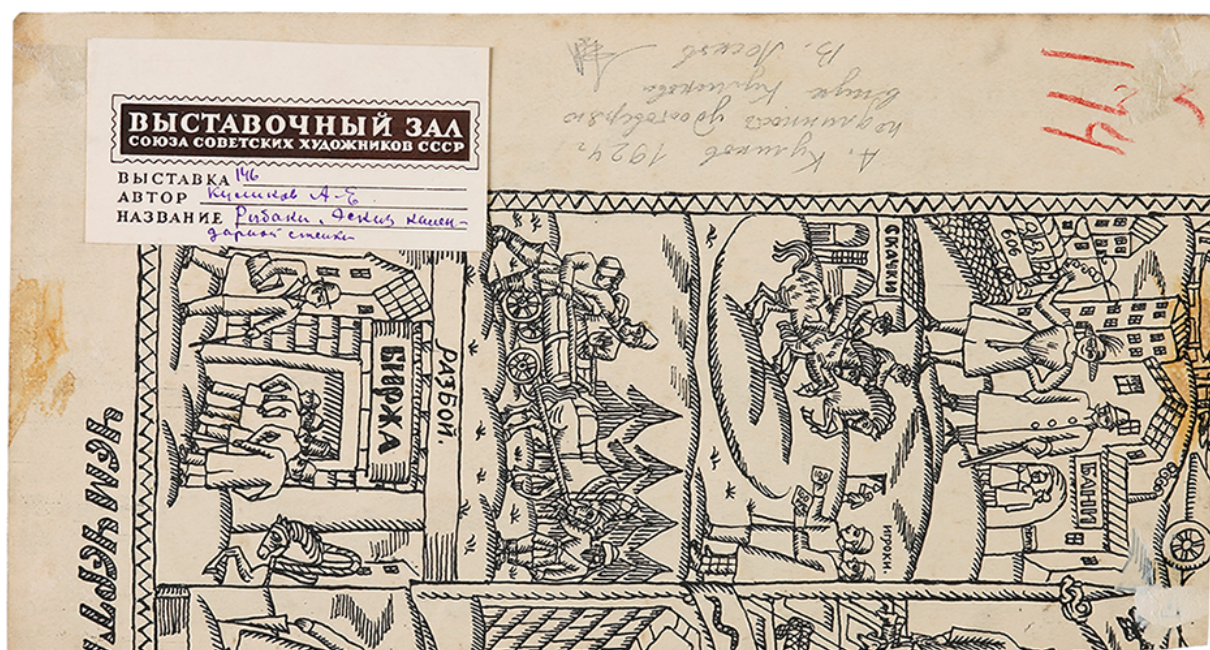 ВЫСТАВОЧНЫЙ ЗАЛ
СОЮЗА СОВЕТСКИХ ХУДОЖНИКОВ СССР
ВЫСТАВКА 146
АВТОР Куликов А-Е
НАЗВАНИЕ Рыбаки. Эскиз кален-
дарной стенки
А. Куликов 1924 г
подлинность удостоверяю
внук Куликова
В.
144
БИРЖА
РАЗБОЙ.
СКАЧКИ
606
ИГРОКИ.
БАНИ